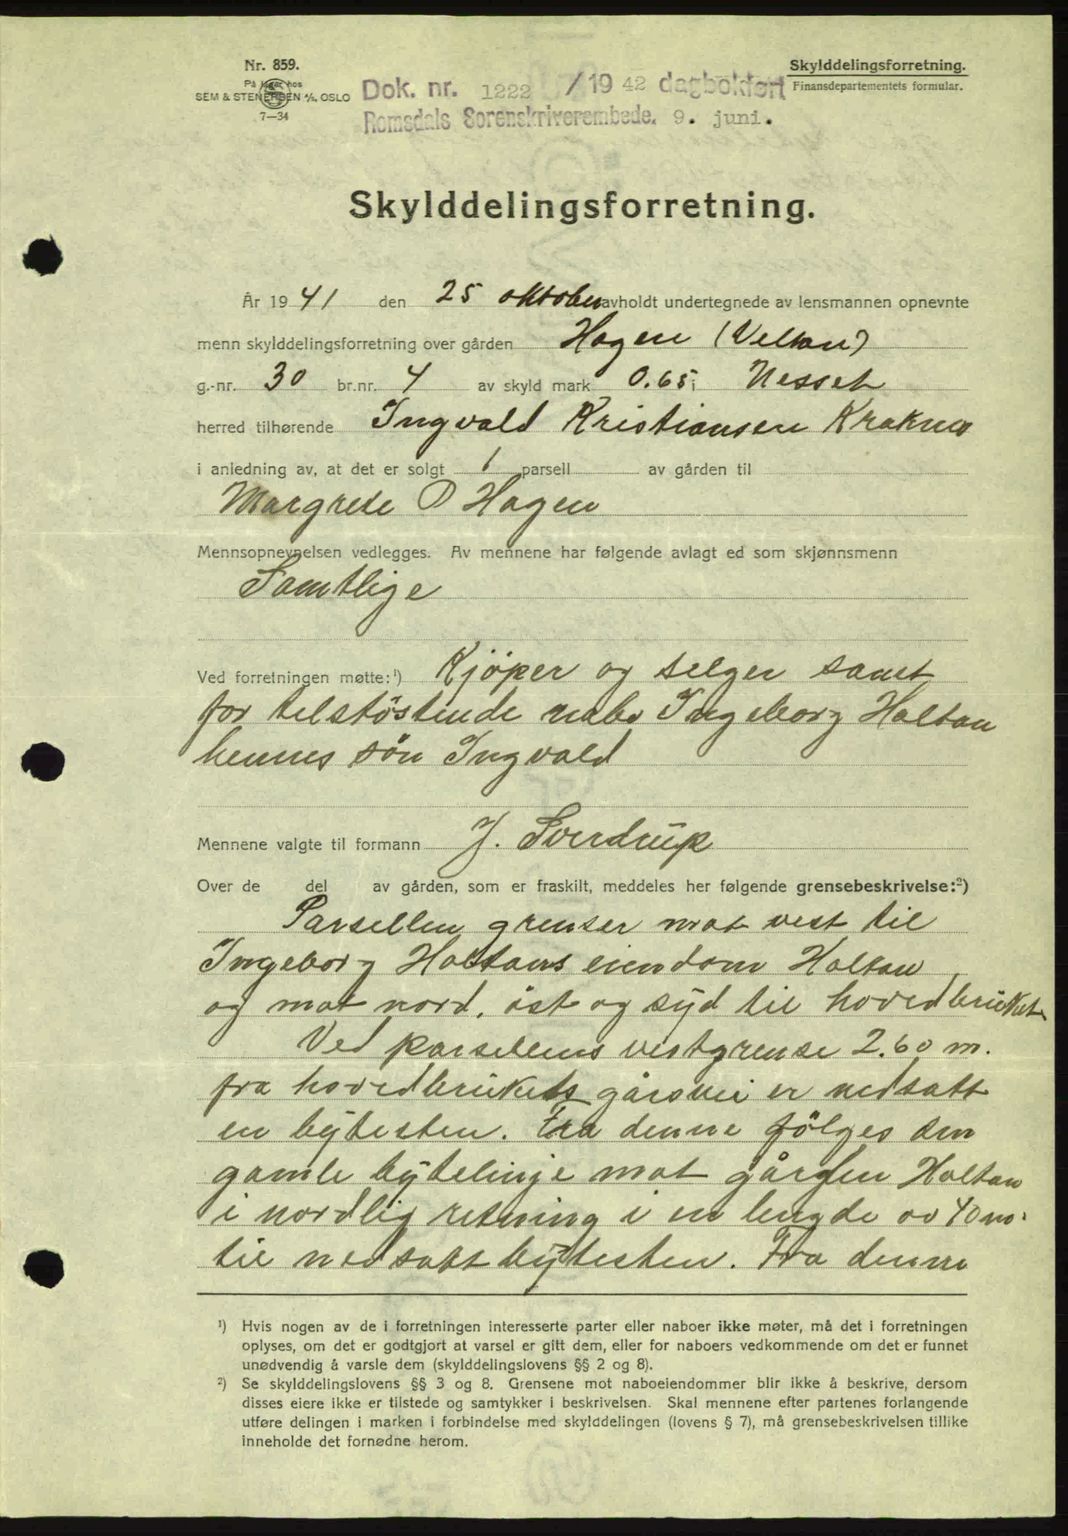 Nr. 859.
På lager hos
SEM & STENERSEN A/S, OSLO
7—34
Skylddelingsforretning.
Finansdepartementets formular.
Dok. nr. 1222 /19 42 dagbokført
Romsdals Sorenskriverembede. 9. juni.
Skylddelingsforretning.
År 1941 den 25 oktober avholdt undertegnede av lensmannen opnevnte
menn skylddelingsforretning over gården Hagen (Veltan)
g.-nr. 30 br.nr. 4 av skyld mark 0.65 i Nesset
herred tilhørende Ingvald Kristiansen Kraknes
i anledning av, at det er solgt 1 parsell av gården til
Margrete O Hagen
Mennsopnevnelsen vedlegges. Av mennene har følgende avlagt ed som skjønnsmenn
Samtlige
Ved forretningen møtte:¹) Kjöper og selger samt
for tilstöstende nabo Ingeborg Holtan
hennes sön Ingvald
Mennene valgte til formann J. Sverdrup
Over de del av gården, som er fraskilt, meddeles her følgende grensebeskrivelse:²)
Parsellen grenser mot vest til
Ingeborg Holtans eiendom Holtan
og mot nord, öst og syd til hovedbruket
Ved parsellens vestgrense 2.60 m.
fra hovedbrukets gårsvei er nedsatt
en bytesten. Fra denne fölges den
gamle bytelinje mot gården Holtan
i nordlig retning i en lengde av 40 m.
til nedsatt bytesten. Fra denne
¹) Hvis nogen av de i forretningen interesserte parter eller naboer ikke møter, må det i forretningen
oplyses, om det er godtgjort at varsel er gitt dem, eller for naboers vedkommende om det er funnet
unødvendig å varsle dem (skylddelingslovens §§ 2 og 8).
²) Se skylddelingslovens §§ 3 og 8. Grensene mot naboeiendommer blir ikke å beskrive, dersom
disses eiere ikke er tilstede og samtykker i beskrivelsen. Skal mennene efter partenes forlangende
utføre delingen i marken i forbindelse med skylddelingen (lovens § 7), må grensebeskrivelsen tillike
inneholde det fornødne herom.